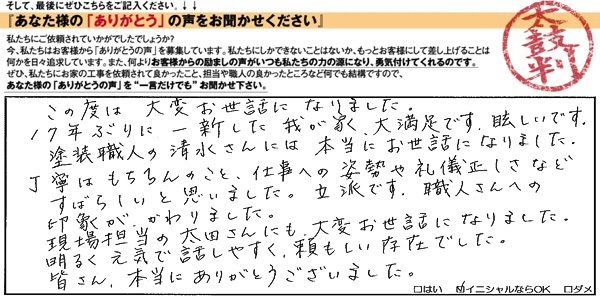 そして、最後にぜひこちらをご記入ください。↓↓
『あなた様の「ありがとう」の声をお聞かせください』
私たちにご依頼されていかがでしたでしょうか?
今、私たちはお客様から「ありがとうの声」を募集しています。私たちにしかできないことはないか、もっとお客様にして差し上げることは
何かを日々追求しています。また、何よりお客様からの励ましの声がいつも私たちの力の源になり、勇気付けてくれるのです。
ぜひ、私たちにお家の工事を依頼されて良かったこと、担当や職人の良かったところなど何でも結構ですので、
あなた様の「ありがとうの声」を“一言だけでも”お聞かせ下さい。
太鼓判
この度は 大変お世話になりました。
17年ぶりに 一新した 我が家、大満足です。眩しいです。
塗装職人の 清水さんには 本当にお世話になりました。
丁寧はもちろんのこと、仕事への 姿勢や礼儀正しさなど
すばらしいと思いました。立派です。職人さんへの
印象が かわりました。
現場担当の 太田さんにも、大変お世話になりました。
明るく元気で話しやすく、頼もしい存在でした。
皆さん、本当にありがとうございました。
□はい ☑イニシャルならOK □ダメ